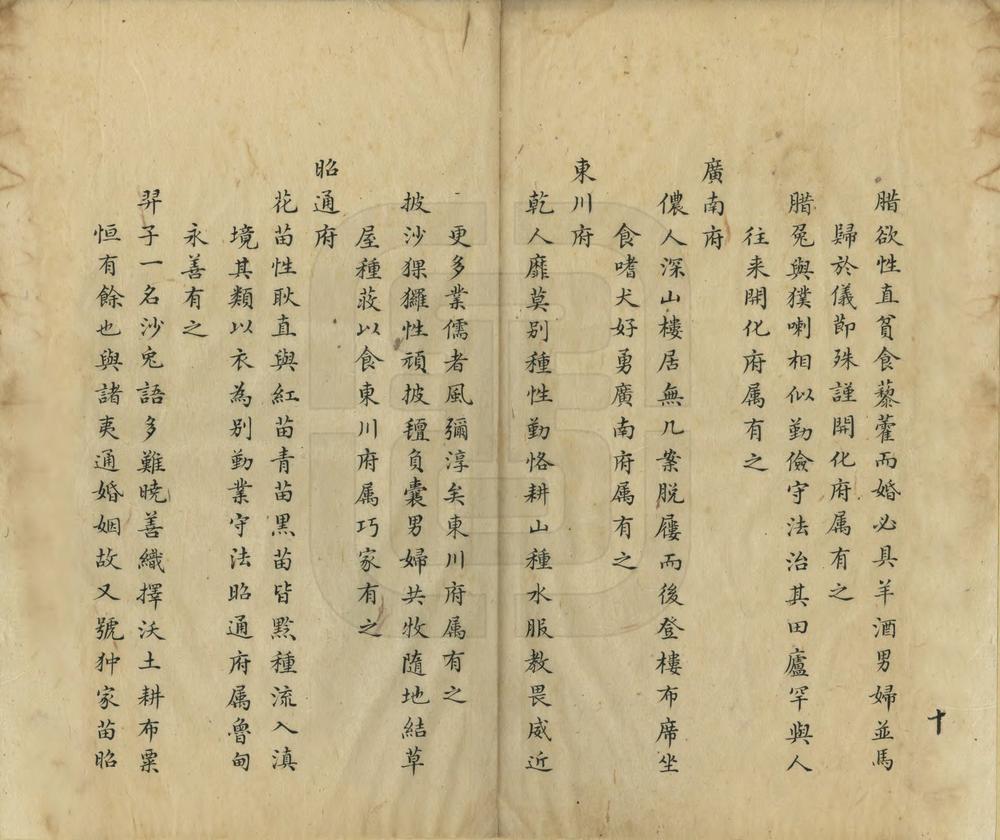 腊欲性直貧食藜藿而婚必具羊酒男婦並馬
歸於儀節殊謹開化府属有之
腊兔與獛喇相似勤儉守法治其田廬罕與人
往来開化府属有之
廣南府
儂人深山樓居無几案脱屨而後登樓布席坐
食嗜犬好勇廣南府属有之
東川府
乾人靡莫别種性勤恪耕山種水服教畏威近
更多業儒者風彌淳矣東川府属有之
披沙猓玀性頑披氊負囊男婦共牧隨地結草
屋種荍以食東川府属巧家有之
昭通府
花苗性耿直與紅苗青苗黑苗皆黔種流入滇
境其類以衣為别勤業守法昭通府属魯甸
永善有之
羿子一名沙兔語多難曉善織擇沃土耕布粟
恒有餘也與諸夷通婚姻故又號狆家苗昭
十